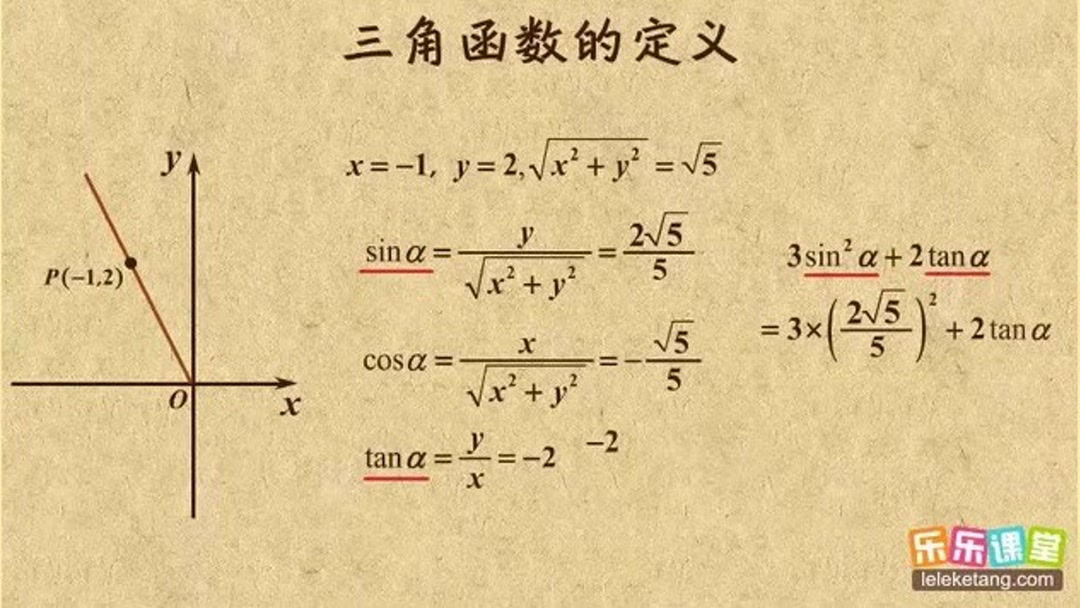 三角函数的定义
y
P(−1,2)
O
x
x=−1, y=2,√(x²+y²)=√5
sinα=y/√(x²+y²)=2√5/5
cosα=x/√(x²+y²)=−√5/5
tanα=y/x=−2
−2
3sin²α+2tanα
=3×(2√5/5)²+2tanα
乐乐课堂
leleketang.com